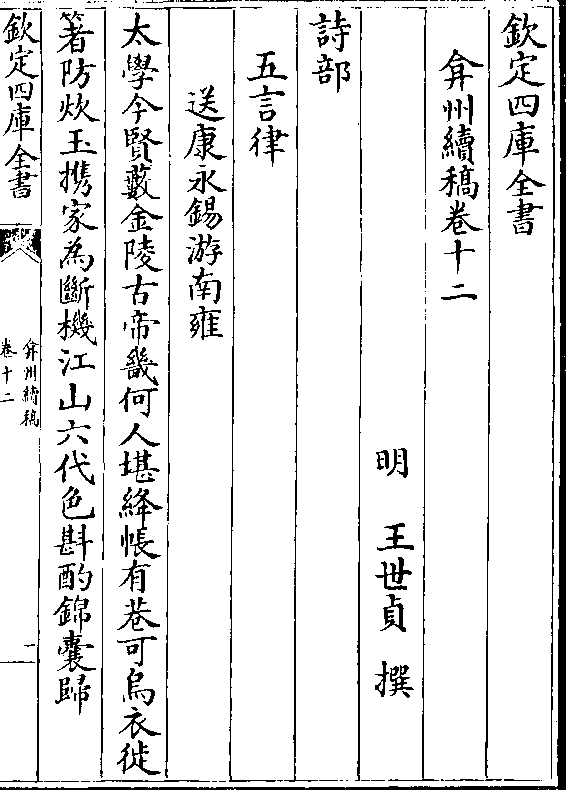 欽定四庫全書
弇州續稿卷十二
明 王世貞 撰
詩部
五言律
送康永錫游南雍
太學今賢藪金陵古帝畿何人堪絳帳有巷可烏衣徙
箸防炊玉携家為斷機江山六代色斟酌錦囊歸
欽定四庫全書
弇州續稿
卷十二